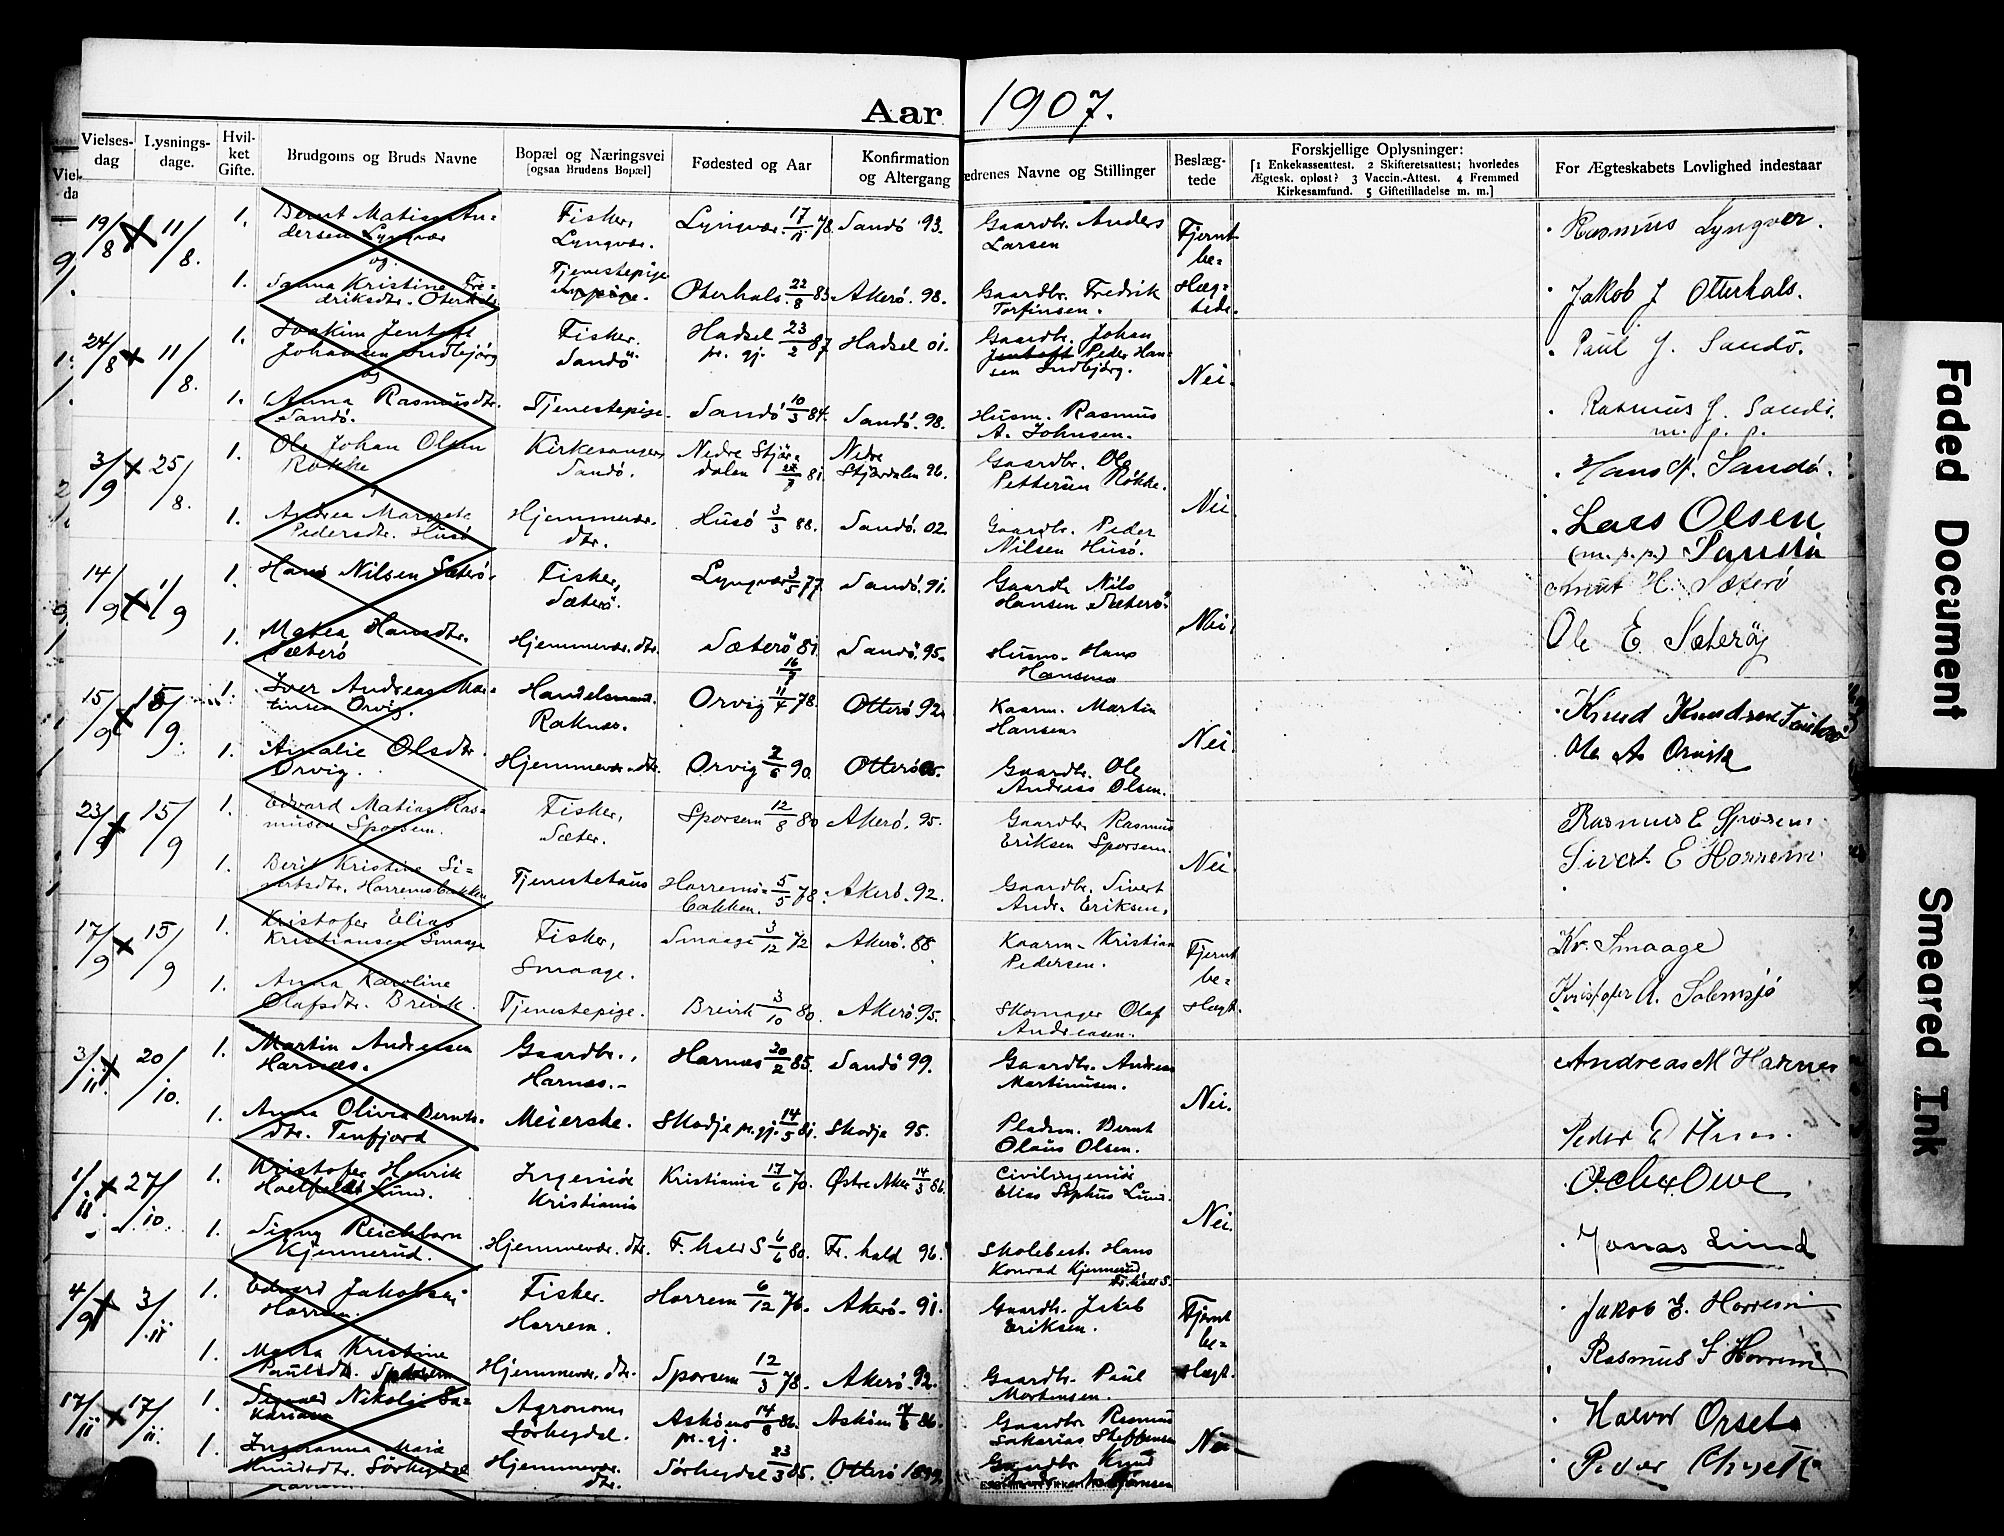 Aar 1907.
Vielses-dag | Lysnings-dage. | Hvil-ket Gifte. | Brudgoms og Bruds Navne | Bopæl og Næringsvei [ogsaa Brudens Bopæl] | Fødested og Aar | Konfirmation og Altergang | ædrenes Navne og Stillinger | Beslæg-tede | Forskjellige Oplysninger: [1 Enkekasseattest. 2 Skifteretsattest; hvorledes Ægtesk. opløst? 3 Vaccin.-Attest. 4 Fremmed Kirkesamfund. 5 Giftetilladelse m. m.] | For Ægteskabets Lovlighed indestaar
19/8 11/8. 1. Bernt Matias An-dersen Lyngvær og | Fisker, Lyngvær. | Lyngvær 17/11 78 | Sandö 93. | Gaardbr. Anders Larsen | Fjernt be-slæg-tede. | Rasmus Lyngver.
1. Sanna Kristine Fre-driksdtr. Oterhals | Tjenestepige | Oterhals 22/8 83 | Akerö. 98. | Gaardbr. Fredrik Torfinsen. | Jakob J Otterhals.
24/8 11/8. 1. Joakim Jentoft Johansen Indbjörg og | Fisker. Sandö | Hadsel pr. gj. 23/2 87 | Hadsel 01. | Gaardbr. Johan Jentoft Peder Han-sen Indbjörg. | Nei. | Paul J. Sandö.
1. Anna Rasmusdtr. Sandö. | Tjenestepige. | Sandö 10/3 84. | Sandö. 98. | Husm. Rasmus A. Johnsen. | Rasmus J. Sandö m. p. p.
3/9 25/8. 1. Ole Johan Olsen Røkke | Kirkesanger, Sandö. | Nedre Stjör-dalen 81. | Nedre Stjördalen 96. | Gaardbr. Ole Pettersen Røkke. | Nei | Hans N. Sandö.
1. Andrea Margrete Pedersdtr. Husö | Hjemmevær. dtr. | Husö 3/3 88. | Sandö. 02. | Gaardbr. Peder Nilsen Husö. | Lars Olsen (m. p. p.) Sandö
14/9 1/9 1. Hans Nilsen Sæterö. | Fisker, Sæterö. | Lyngvær 3/5 77 | Sandö. 91. | Gaardbr. Nils Hansen Sæterö. | Nei. | Knut H. Sæterö
1. Matea Hansdtr. Sæterö | Hjemmevær. dtr. | Sæterö 81. 16/9 | Sandö. 95. | Husm. Hans Hansen | Ole E. Sæteröy
15/9 15/9. 1. Iver Andreas Mar-tinsen Orvig. | Handelsmand. Raknes. | Orvig 11/4 78. | Otterö 92. | Kaarm. Martin Hansen | Nei. | Knud Knudsen
1. Amalie Olsdtr. Orvig. | Hjemmevær. dtr. | Orvig 2/6 90. | Otterö 05. | Gaardbr. Ole Andreas Olsen. | Ole A. Orvik
23/9 15/9 1. Edvard Matias Ras-musen Sporsem. | Fisker, Sæter. | Sporsem 12/8 80 | Akerö. 95. | Gaardbr. Rasmus Eriksen Sporsem. | Nei. | Rasmus E Sporsem
1. Berit Kristine Si-vertsdtr. Harremsbakken | Tjenestetaus | Harrems-bakken. 5/5 78. | Akerö. 92. | Gaardbr. Sivert Andr. Eriksen. | Sivert E Horrem
17/9 15/9 1. Kristofer Elias Kristiansen Smaage | Fisker, Smaage. | Smaage 3/12 72 | Akerö. 88. | Kaarm. Kristian Pedersen. | Fjernt be-slægt. | Kr. Smaage
1. Anna Karoline Olafsdtr. Breivik. | Tjenestepige. | Breivik 3/10 80. | Akerö. 95. | Skomager Olaf Andreasen. | Kristofer A. Solemsjö
3/11. 20/10. 1. Martin Andreassen Harnæs. | Gaardbr., Harnæs. | Harnæs 20/2 85. | Sandö 99. | Gaardbr. Andreas Martinusen. | Nei. | Andreas M Harnes
1. Anna Olivia Bernts-dtr. Tenfjord | Meierske. | Skodje pr. gj. 14/5 81. | Skodje 95. | Pladsm. Bernt Olaus Olsen. | Peder
1/11 27/10. 1. Kristofer Henrik Lund. | Ingeniör Kristiania | Kristiania 17/6 70. | Østre Aker 14/3 86. | Civilingeniör Elias Sophus Lund. | Nei.
1. Signy Reichborn Kjennerud. | Hjemmevær. dtr. | F. hald S 6/6 80. | Fr. hald 96. | Skolebest. Hans Konrad Kjennerud, Fr. hald S. | Jonas Lund
4/9 3/11 1. Edvard Jakobsen Harrem. | Fisker. Harrem. | Harrem 6/12 76. | Akerö. 91. | Gaardbr. Jakob Eriksen. | Fjernt be-slægt. | Jakob E. Horrem
1. Marta Kristine Paulsdtr. Sporsem | Hjemmevær. dtr. | Sporsem 12/3 78. | Akerö. 92. | Gaardbr. Paul Mortensen. | Rasmus J Horrem
17/11 17/11. 1. Nikolai Sa-kariasen | Agronom, Sörhegdal. | Asköen pr. gj. 14/8 86. | Asköen 86. | Gaardbr. Rasmus Sakarias Steffensen | Nei | Halvor Orset
1. Ingeranna Marie Knudsdtr. Sörhegdal | Hjemmevær. dtr. | Sörhegdal 23/3 85. | Otterö 1899 | Gaardbr. Knud | Peder
Faded Document
Smeared Ink